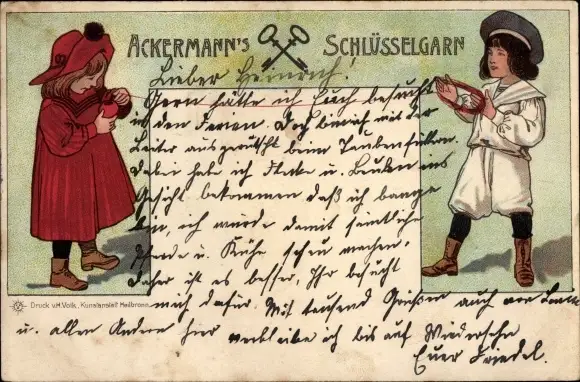 ACKERMANN'S SCHLÜSSELGARN
Lieber Heinrich!
Gern hätte ich Euch besucht
in den Ferien. Doch bin ich mit der
Leiter ausgerutscht beim Taubenfüttern.
Dabei habe ich Flecke u. Beulen ins
Gesicht bekommen daß ich bange
bin, ich würde damit sämtliche
Pferde u. Kühe scheu machen.
Daher ist es besser, Ihr besucht
mich dafür. Mit tausend Grüßen auch an
u. allen Andern hier verbleibe ich bis auf Wiedersehn
Euer Friedel.
Druck v. H. Volk, Kunstanstalt Heilbronn